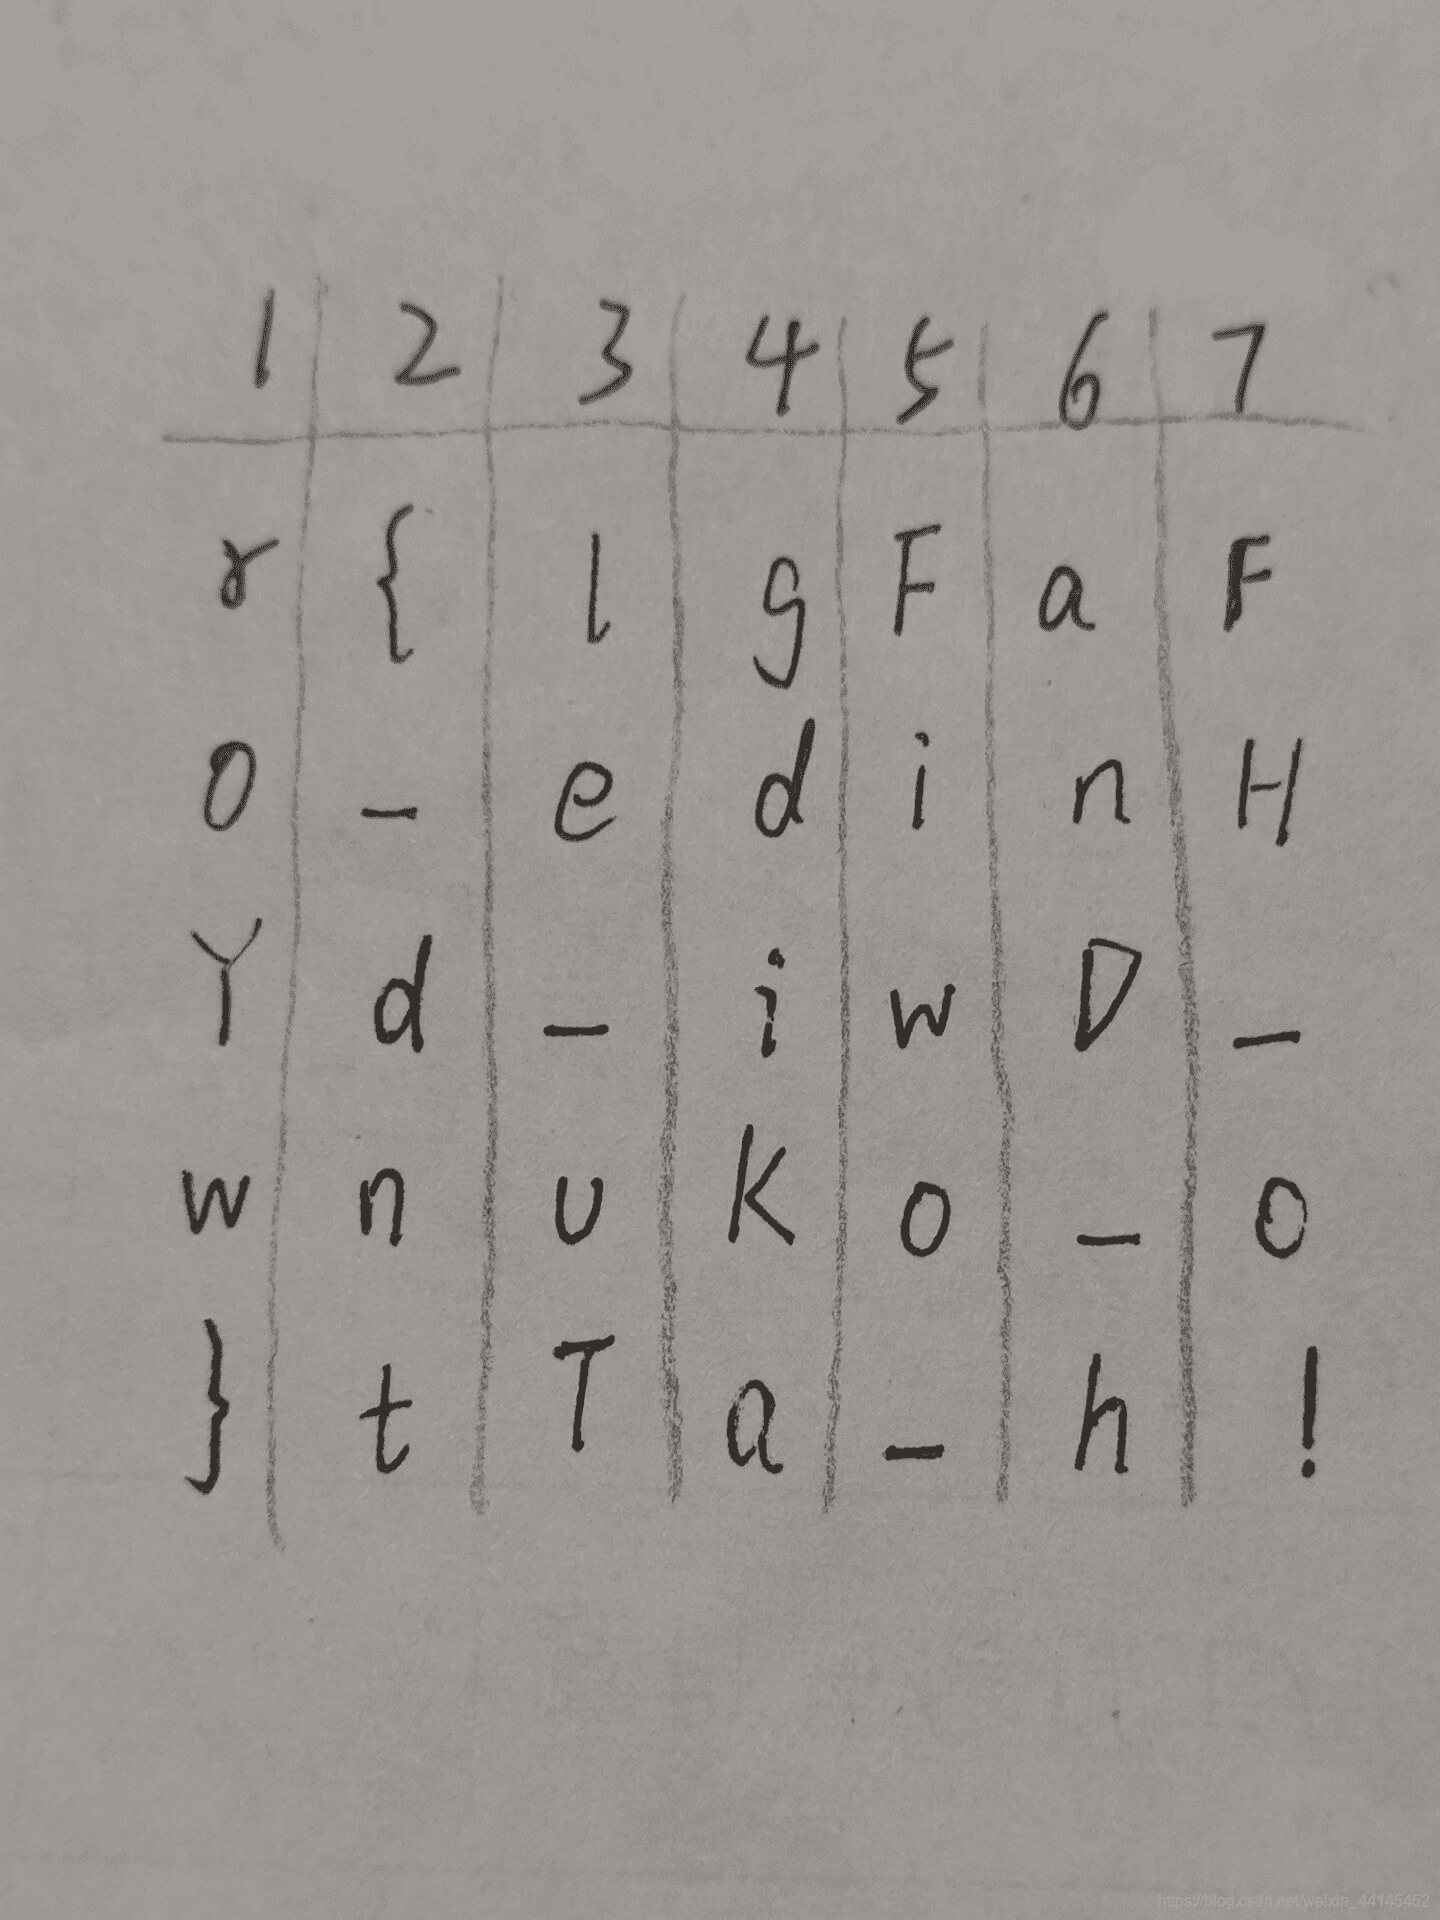 1 2 3 4 5 6 7
r { l g F a F
O _ e d i n H
Y d _ i w D _
w n u K o _ o
} t T a _ h !
https://blog.csdn.net/weixin_44145452